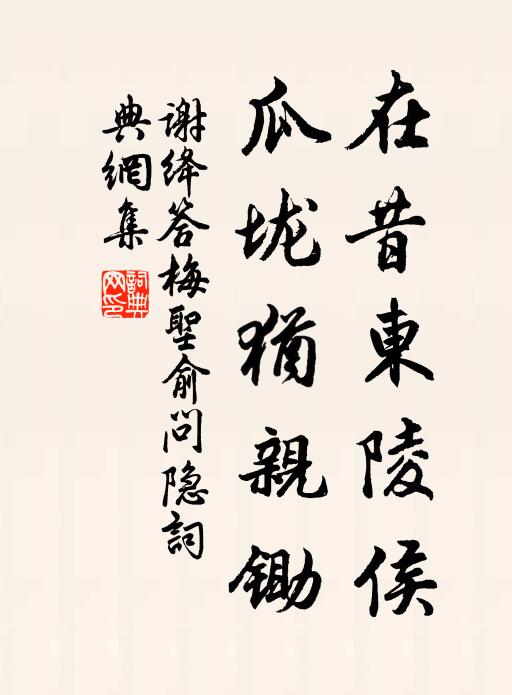 在昔東陵侯
瓜垅猶親鋤
谢绛答梅聖俞问隐詞
典網集
詞典
网印